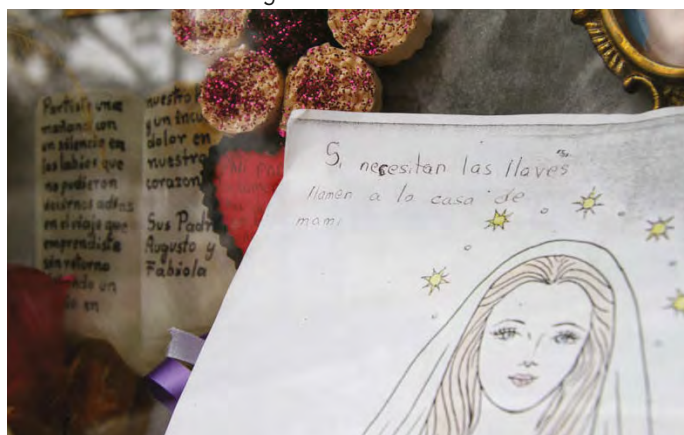 Partiste una
mañana con
un silencio en
los labios que
no pudieron
decirnos adios
en el viaje que
emprendiste
sin retorno
un
en
nuestro
y un
dolor en
nuestro
corazon
Sus Padres
Augusto y
Fabiola
Si necesitan las llaves
llamen a la casa de
mami